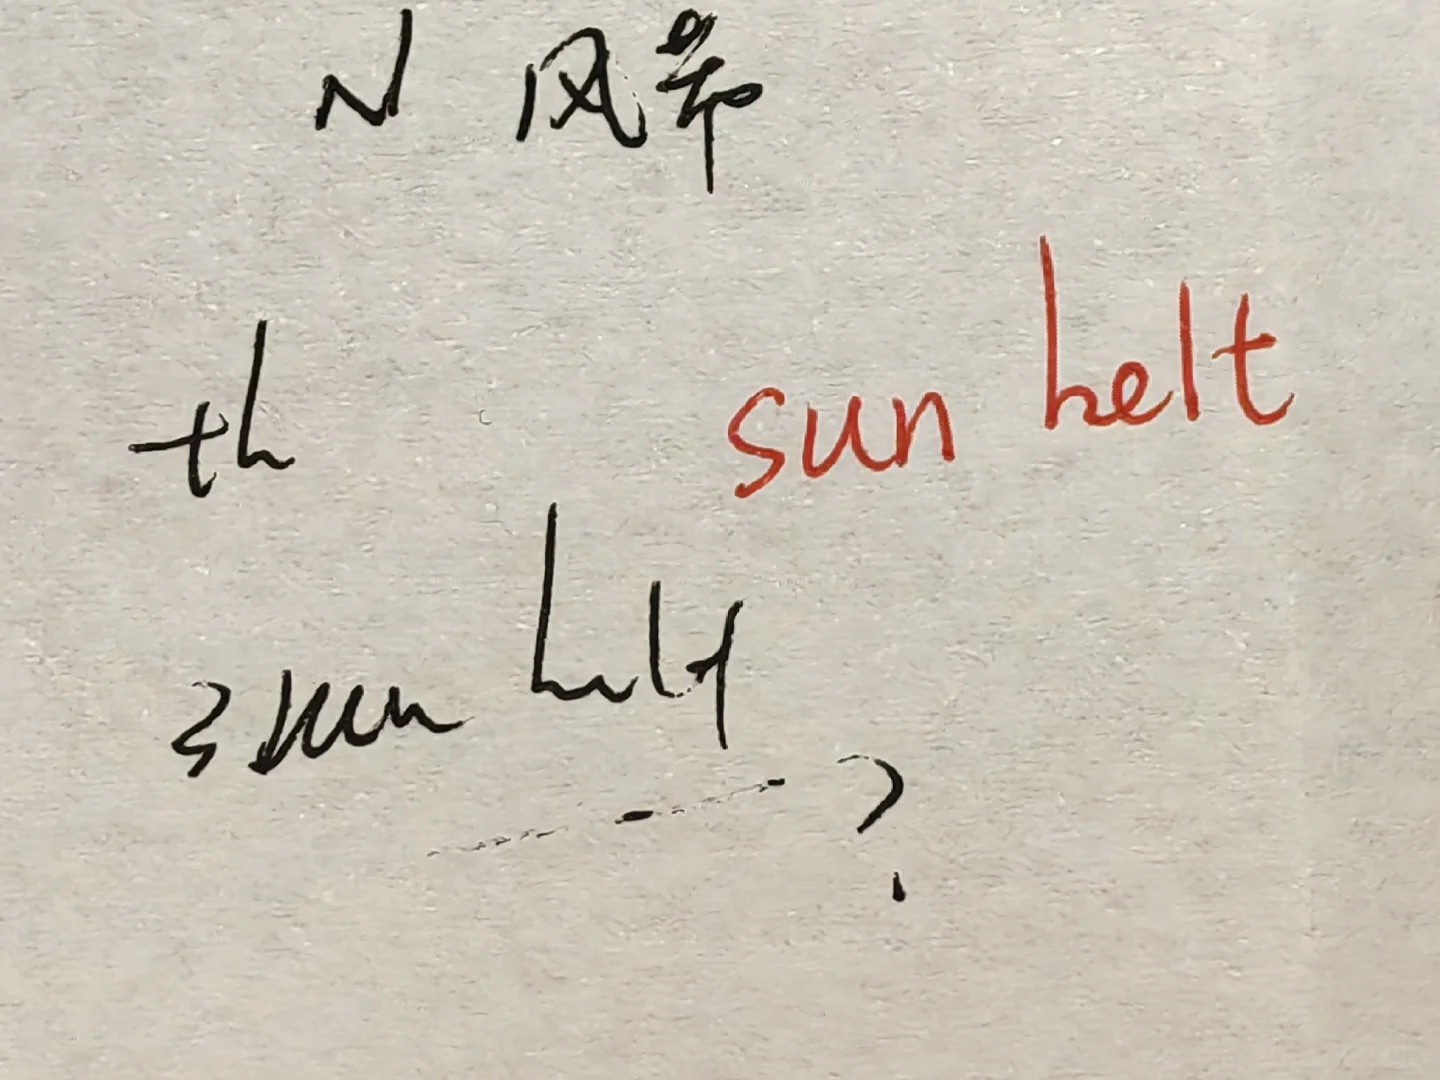 N 风带
th
sun belt
sun belt
?